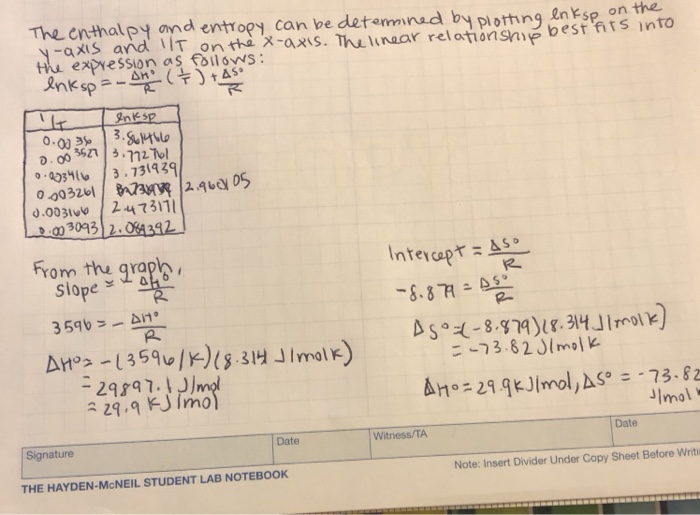 The enthalpy and entropy can be determined by plotting lnksp on the
y-axis and 1/T on the x-axis. The linear relationship best fits into
the expression as follows:
lnksp = - ΔH°/R (1/T) + ΔS°/R
1/T lnksp
3.861466
3.772761
0.003416 3.731939
0.003261 2.960105
0.003166 2.473171
0.003093 2.084392
From the graph,
slope = - ΔH°/R
3596 = - ΔH°/R
ΔH° = -(3596/K)(8.314 J/molK)
= 29897.1 J/mol
= 29.9 KJ/mol
Intercept = ΔS°/R
-8.879 = ΔS°/R
ΔS° = (-8.879)(8.314 J/molK)
= -73.82 J/molK
ΔH° = 29.9KJ/mol, ΔS° = -73.82
J/mol
Signature
Date
Witness/TA
Date
THE HAYDEN-McNEIL STUDENT LAB NOTEBOOK
Note: Insert Divider Under Copy Sheet Before Writi